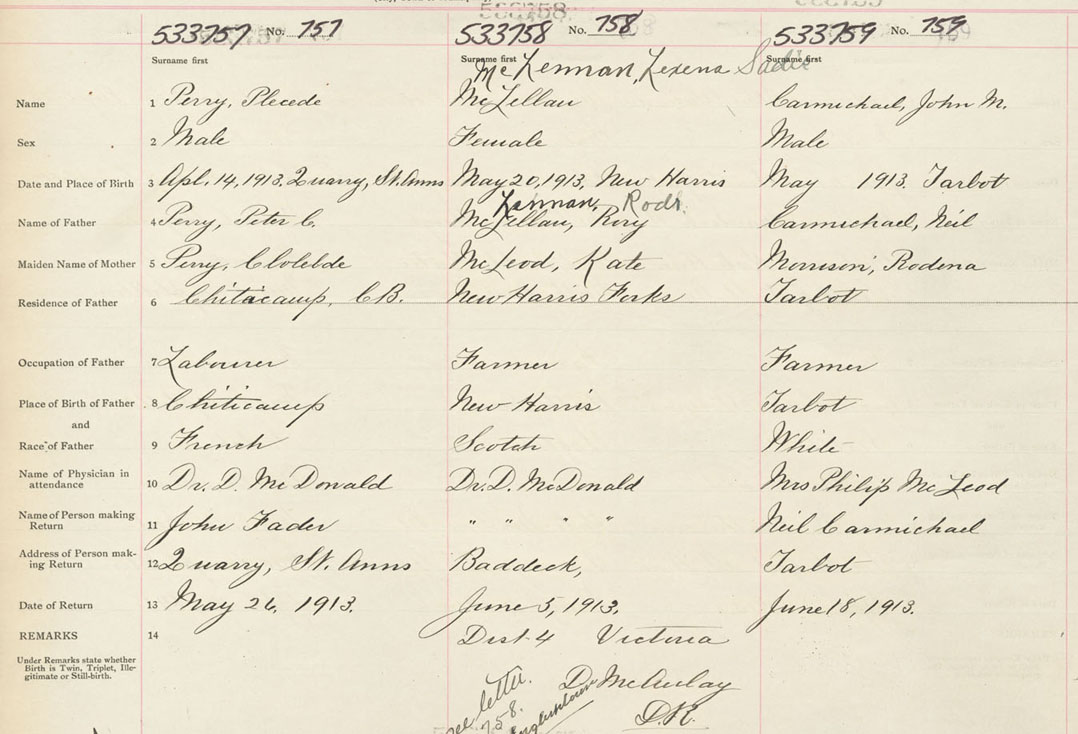 533757 No. 757 533758 No. 758 533759 No. 759
Surname first Surname first Surname first
McLennan, Lexena Sadie
Name 1 Perry, Plecede McLellan Carmichael, John M.
Sex 2 Male Female Male
Date and Place of Birth 3 Apl. 14, 1913. Quarry, St. Anns May 20, 1913, New Harris May 1913. Tarbot
Lennan, Rodr.
Name of Father 4 Perry, Peter C. McLellan, Rory Carmichael, Neil
Maiden Name of Mother 5 Perry, Clolebde McLeod, Kate Morrison, Rodena
Residence of Father 6 Chiticamp, C.B. New Harris Forks Tarbot
Occupation of Father 7 Labourer Farmer Farmer
Place of Birth of Father 8 Chiticamp New Harris Tarbot
and
Race of Father 9 French Scotch White
Name of Physician in
attendance 10 Dr. D. McDonald Dr. D. McDonald Mrs Philip McLeod
Name of Person making
Return 11 John Fader " " " " Neil Carmichael
Address of Person mak-
ing Return 12 Quarry, St. Anns Baddeck, Tarbot
Date of Return 13 May 26, 1913. June 5, 1913. June 18, 1913.
REMARKS 14 Dist 4 Victoria
Under Remarks state whether
Birth is Twin, Triplet, Ille-
gitimate or Still-birth.
D. McAulay
D.R.
see letter
758.
Englishtown